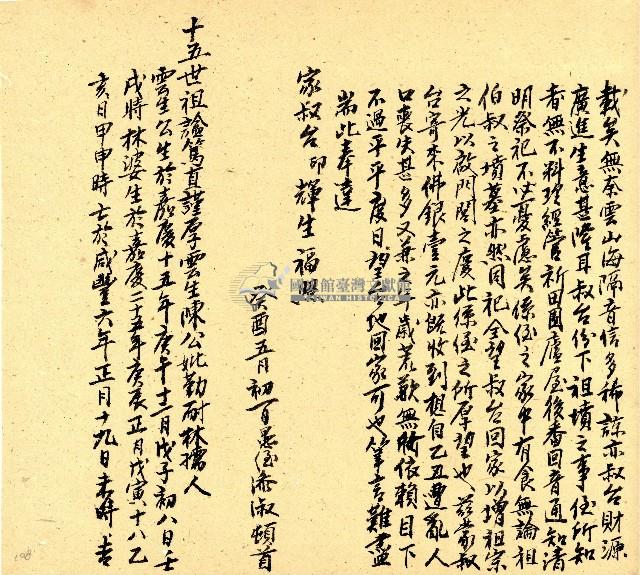 載矣無奈雲山海隔音信多稀諒亦叔台財源
廣進生意甚隆耳叔台份下祖墳之事侄所知
者無不料理經營祈田園廬屋後香回音通知清
明祭祀不必憂慮矣係侄之家中有食無論祖
伯叔之墳墓亦然同祀全望叔台回家以增祖宗
之光以啟門閭之慶此係侄之所厚望也茲蒙叔
台寄來佛銀壹元亦既收到但自乙丑遭亂人
口喪失甚多又兼之年歲荒歉無所依賴目下
不過平平度日望 地回家可也筆言難盡
耑此奉達
家叔台印輝生福
癸酉五月初 日愚侄添淑頓首
十五世祖諡篤直謹厚雲生陳公妣勤耐林孺人
雲生公生於嘉慶十五年庚午十二月戊子初八日壬
戌時林婆生於嘉慶二十五年庚辰正月戊寅十八乙
亥日甲申時亡於咸豐六年正月十九日未時吉
國史館臺灣文獻館
TAIWAN HISTORICA